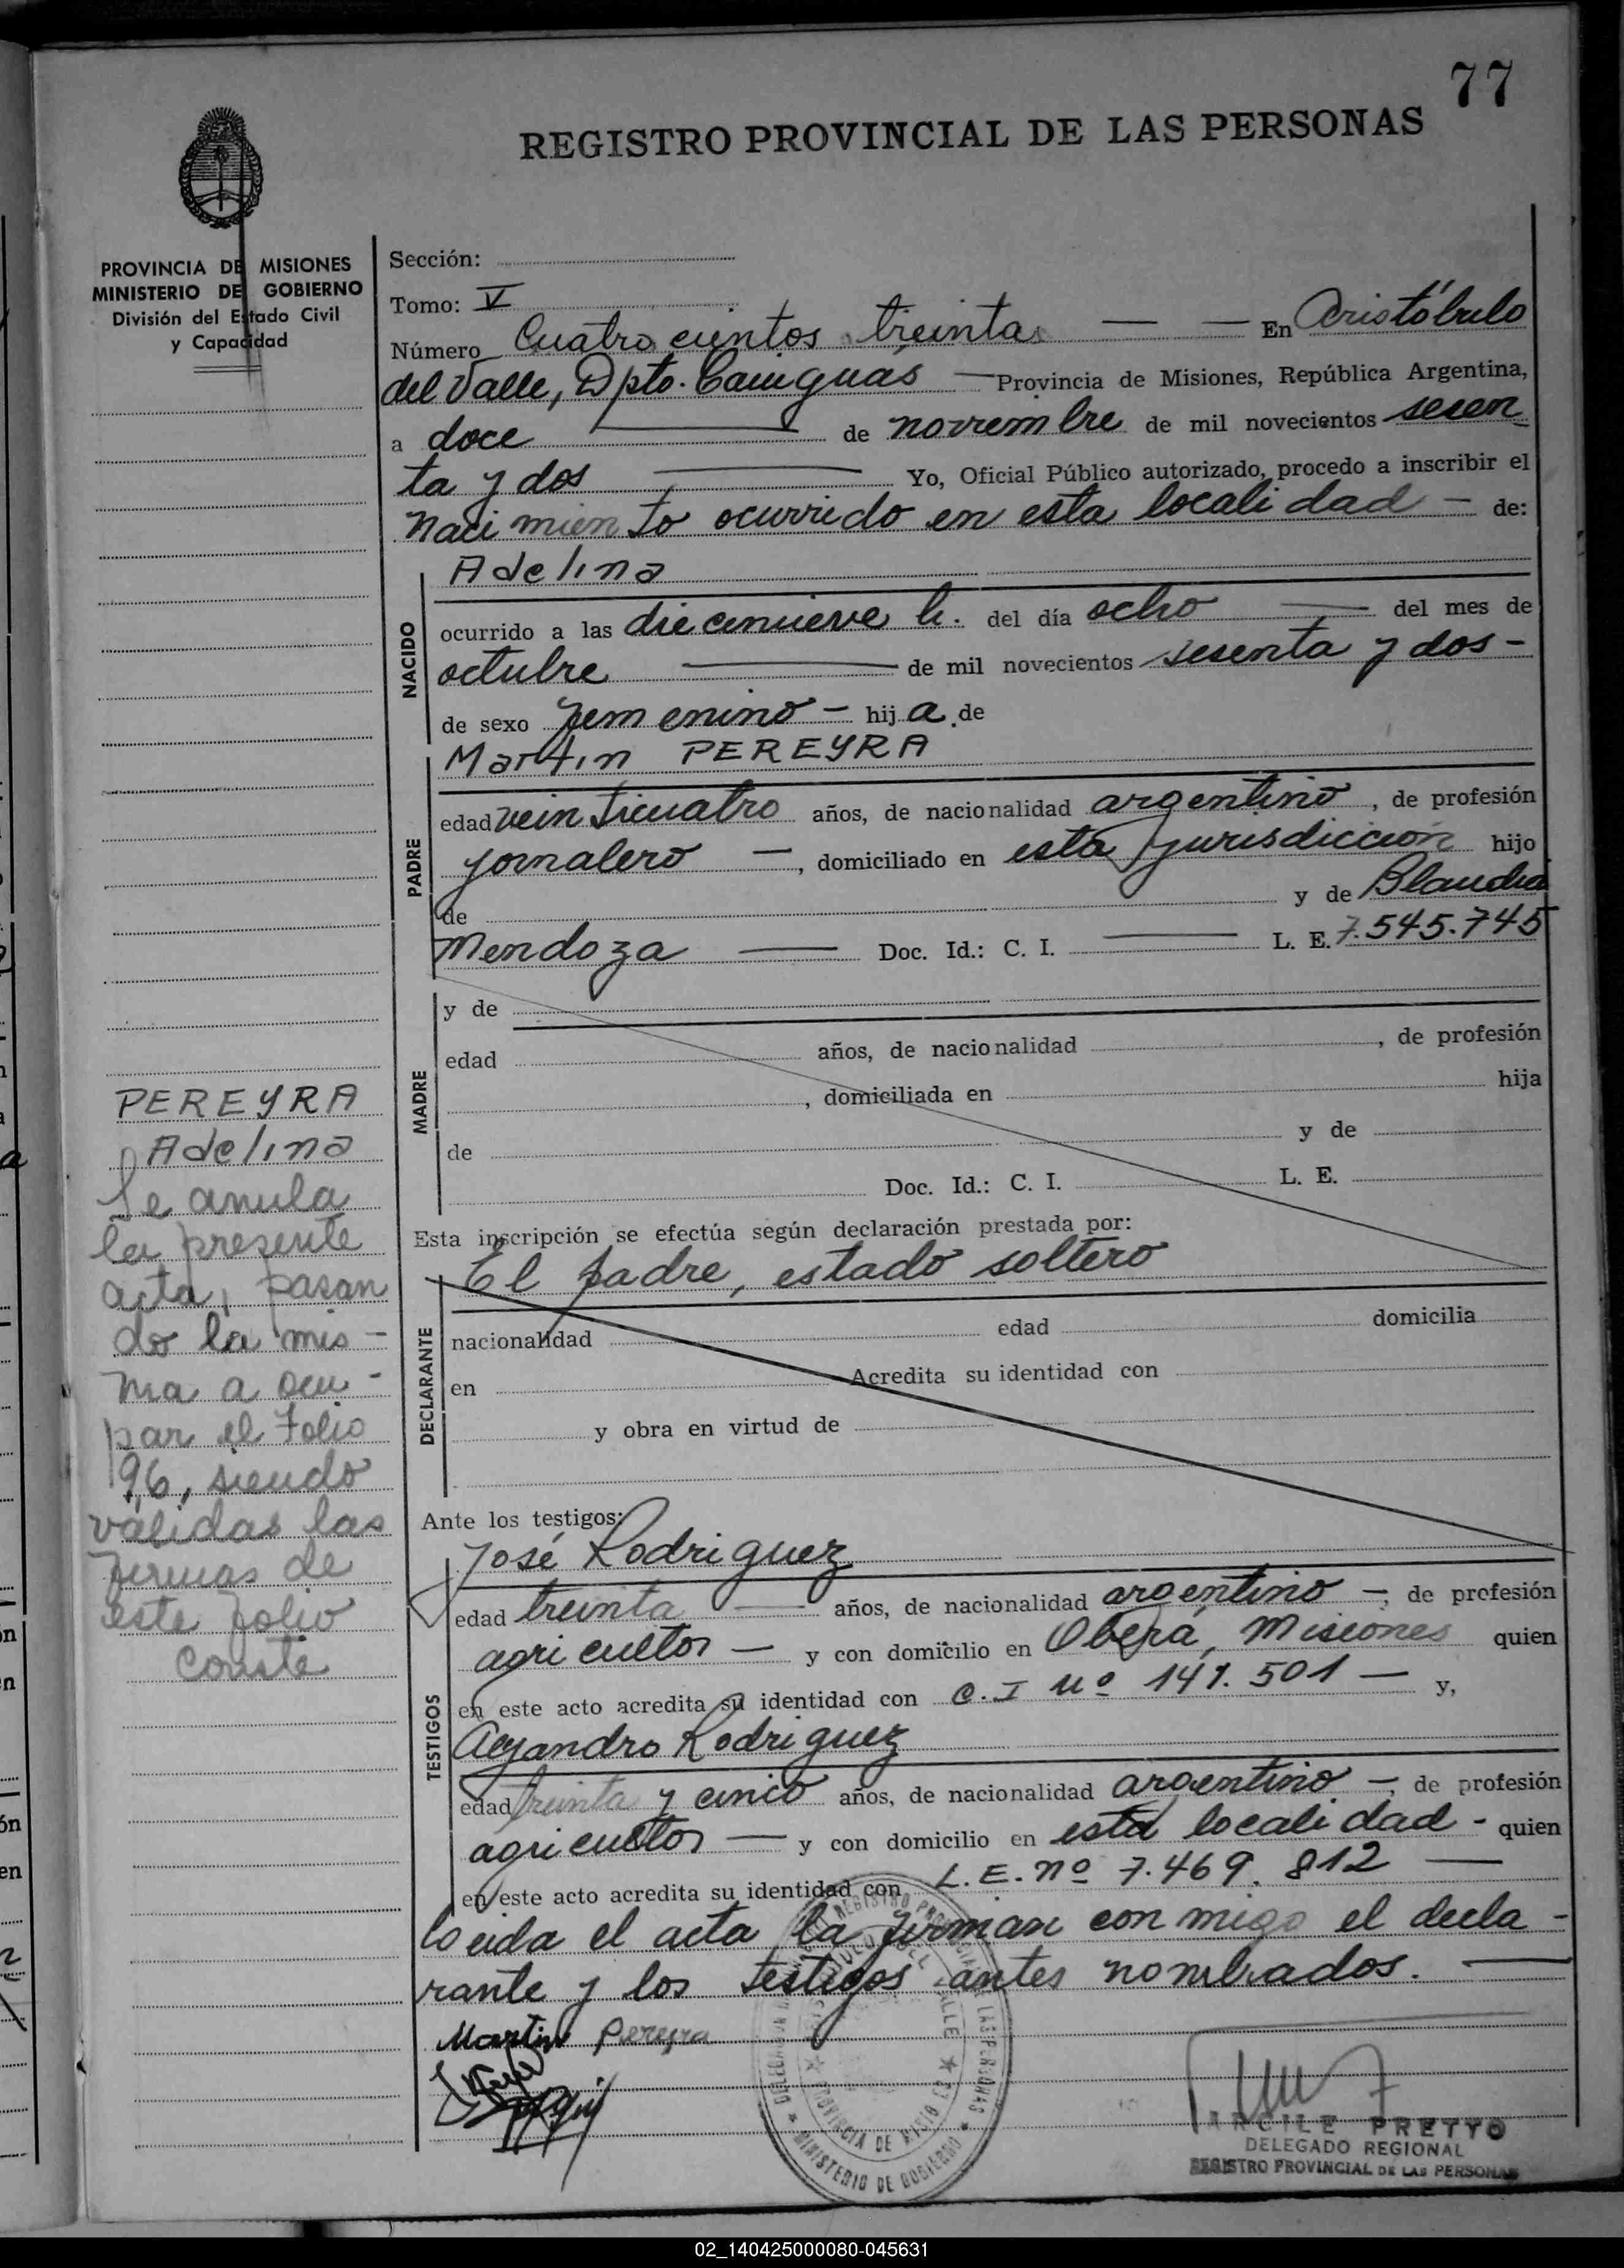 77
REGISTRO PROVINCIAL DE LAS PERSONAS
PROVINCIA DE MISIONES
MINISTERIO DE GOBIERNO
División del Estado Civil
y Capacidad
Sección:
Tomo: V
Número Cuatrocientos treinta — — En Aristóbulo
del Valle, Dpto. Cainguás — Provincia de Misiones, República Argentina,
a doce — de noviembre de mil novecientos sesen
ta y dos — Yo, Oficial Público autorizado, procedo a inscribir el
nacimiento ocurrido en esta localidad — de:
Adelina
NACIDO
ocurrido a las diecinueve h. del día ocho — del mes de
octubre — de mil novecientos sesenta y dos -
de sexo femenino - hij a de
Martin PEREYRA
PADRE
edad veinticuatro años, de nacionalidad argentino, de profesión
jornalero —, domiciliado en esta jurisdicción hijo
de y de Blandia
Mendoza — Doc. Id.: C. I. — L. E. 7.545.745
MADRE
y de
edad años, de nacionalidad , de profesión
, domiciliada en hija
de y de
Doc. Id.: C. I. L. E.
Esta inscripción se efectúa según declaración prestada por:
El padre, estado soltero
DECLARANTE
nacionalidad edad domicilia
en Acredita su identidad con
y obra en virtud de
Ante los testigos:
José Rodriguez
TESTIGOS
edad treinta — años, de nacionalidad argentino —, de profesión
agricultor — y con domicilio en Oberá, Misiones quien
en este acto acredita su identidad con C. I Nº 147.501 — y,
Alejandro Rodriguez
edad treinta y cinco años, de nacionalidad argentino —, de profesión
agricultor — y con domicilio en esta localidad - quien
en este acto acredita su identidad con L.E. nº 7.469.812 —
leida el acta la firman conmigo el decla-
rante y los testigos antes nombrados. —
Martin Pereyra
PEREYRA
Adelina
Se anula
la presente
acta, pasan
do la mis-
ma a ocu-
par el Folio
96, siendo
válidas las
firmas de
este folio
Conste
REGISTRO PROVINCIAL DE LAS PERSONAS
PROVINCIA DE MISIONES
MINISTERIO DE GOBIERNO
PRETTO
DELEGADO REGIONAL
REGISTRO PROVINCIAL DE LAS PERSONAS
02_140425000080-045631